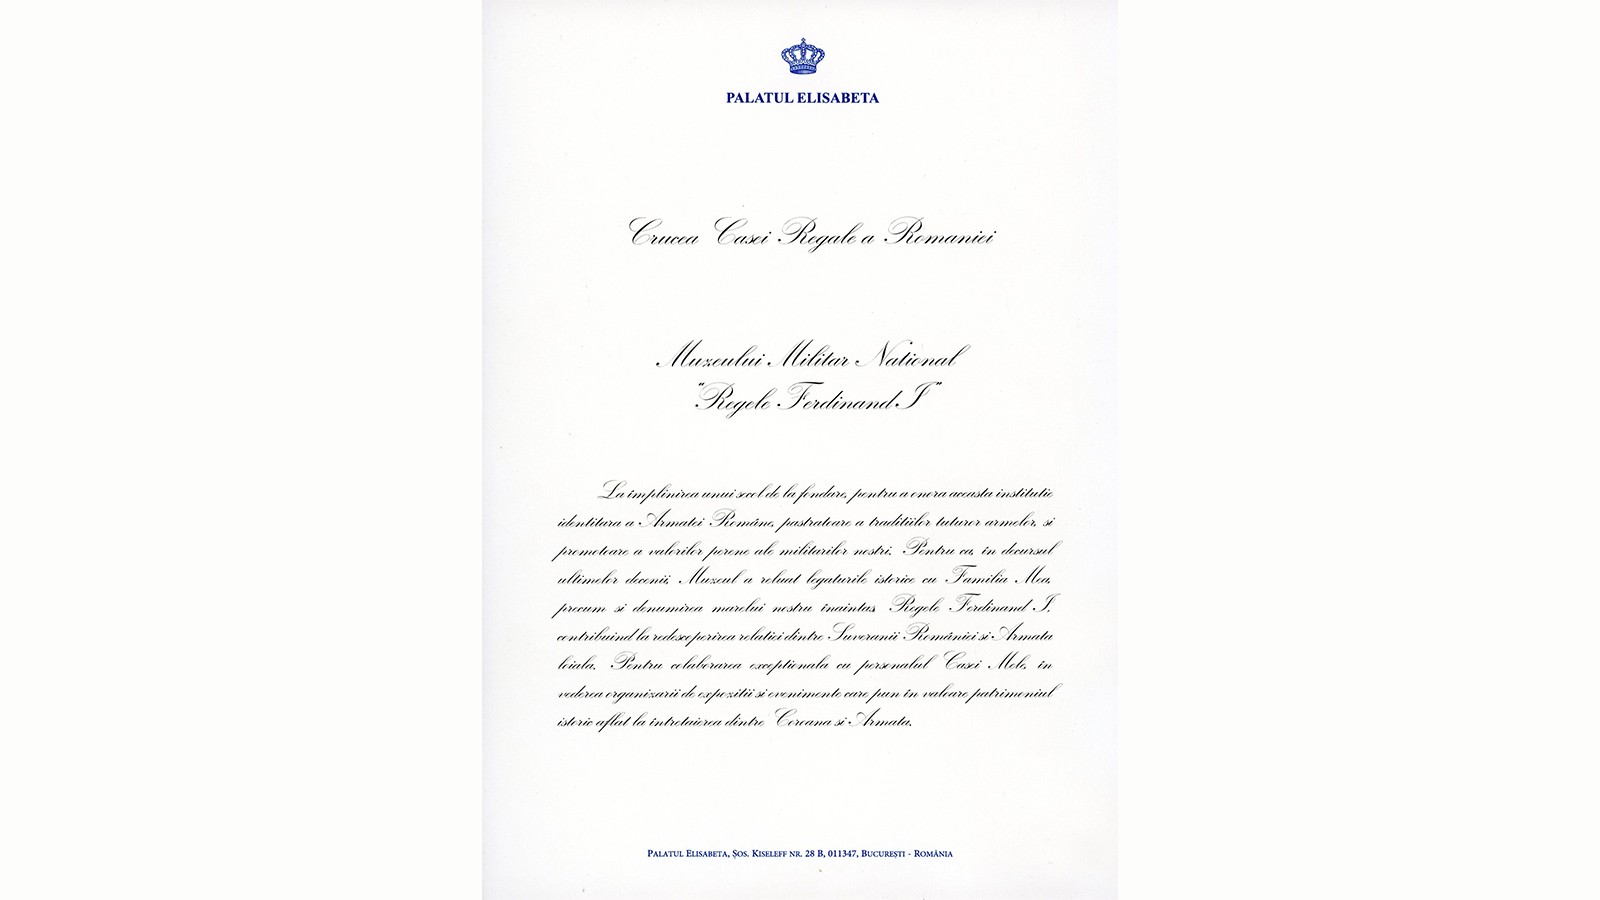 PALATUL ELISABETA
Crucea Casei Regale a Romaniei
Muzeului Militar National
"Regele Ferdinand I"
La împlinirea unui secol de la fondare, pentru a onora aceasta institutie
identitara a Armatei Române, pastratoare a traditiilor tuturor armelor, si
promotoare a valorilor perene ale militarilor nostri. Pentru ca, în decursul
ultimelor decenii, Muzeul a reluat legaturile istorice cu Familia Mea,
precum si denumirea marelui nostru înaintas Regele Ferdinand I,
contribuind la redescoperirea relatiei dintre Suveranii României si Armata
loiala. Pentru colaborarea exceptionala cu personalul Casei Mele, în
vederea organizarii de expozitii si evenimente care pun în valoare patrimoniul
istoric aflat la întretaierea dintre Coroana si Armata.
PALATUL ELISABETA, ȘOS. KISELEFF NR. 28 B, 011347, BUCUREȘTI - ROMÂNIA